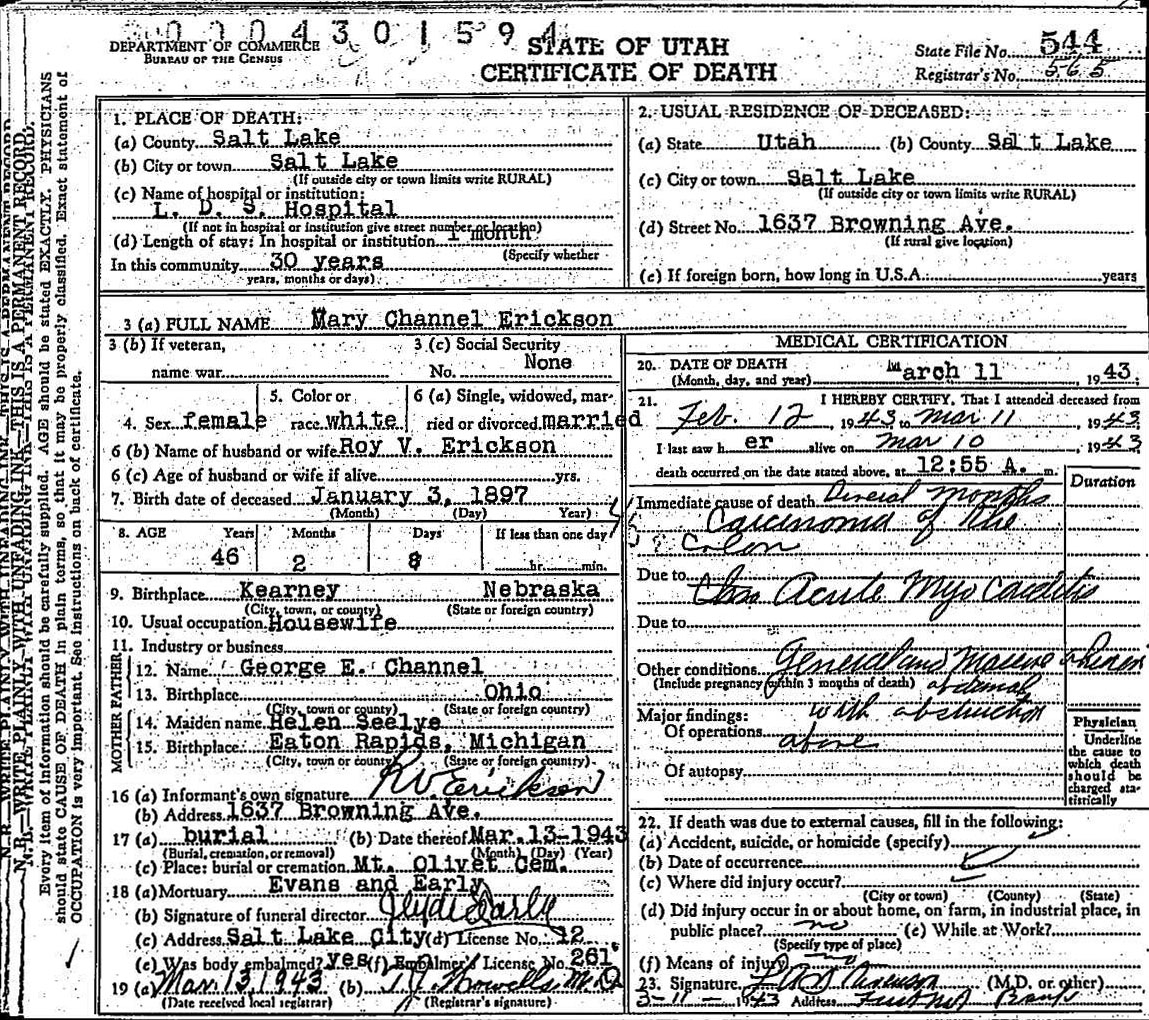 0004301594
DEPARTMENT OF COMMERCE
BUREAU OF THE CENSUS
STATE OF UTAH
CERTIFICATE OF DEATH
State File No. 544
Registrar's No. 565
N.B.—WRITE PLAINLY WITH UNFADING INK—THIS IS A PERMANENT RECORD.
Every item of information should be carefully supplied. AGE should be stated EXACTLY. PHYSICIANS
should state CAUSE OF DEATH in plain terms, so that it may be properly classified. Exact statement of
OCCUPATION is very important. See instructions on back of certificate.
1. PLACE OF DEATH:
(a) County Salt Lake
(b) City or town Salt Lake
(If outside city or town limits write RURAL)
(c) Name of hospital or institution:
L. D. S. Hospital
(If not in hospital or institution give street number or location)
(d) Length of stay: In hospital or institution 1 month
(Specify whether
In this community 30 years
years, months or days)
2. USUAL RESIDENCE OF DECEASED:
(a) State Utah (b) County Salt Lake
(c) City or town Salt Lake
(If outside city or town limits write RURAL)
(d) Street No. 1637 Browning Ave.
(If rural give location)
(e) If foreign born, how long in U.S.A.: years
3 (a) FULL NAME Mary Channel Erickson
3 (b) If veteran,
name war
3 (c) Social Security
No. None
4. Sex female
5. Color or
race white
6 (a) Single, widowed, mar-
ried or divorced married
6 (b) Name of husband or wife Roy V. Erickson
6 (c) Age of husband or wife if alive yrs.
7. Birth date of deceased January 3, 1897
(Month) (Day) Year)
8. AGE Years Months Days If less than one day
46 2 8 hr. min.
9. Birthplace Kearney Nebraska
(City, town, or county) (State or foreign country)
10. Usual occupation Housewife
11. Industry or business
FATHER
12. Name George E. Channel
13. Birthplace Ohio
(City, town or county) (State or foreign country)
MOTHER
14. Maiden name Helen Seelye
15. Birthplace Eaton Rapids, Michigan
(City, town or county) (State or foreign country)
16 (a) Informant's own signature R V Erickson
(b) Address 1637 Browning Ave.
17 (a) burial (b) Date thereof Mar. 13-1943
(Burial, cremation, or removal) (Month) (Day) (Year)
(c) Place: burial or cremation Mt. Olivet Cem.
18 (a) Mortuary Evans and Early
(b) Signature of funeral director Early
(c) Address Salt Lake City (d) License No. 12
(e) Was body embalmed? yes (f) Embalmer License No. 261
19 (a) Mar. 13, 1943 (b) Howells M.D
(Date received local registrar) (Registrar's signature)
MEDICAL CERTIFICATION
20. DATE OF DEATH
(Month, day, and year) March 11, 1943
21. I HEREBY CERTIFY, That I attended deceased from
Feb. 12 1943 to Mar 11, 1943
I last saw h er alive on Mar 10 1943
death occurred on the date stated above, at 12:55 A. m.
Duration
Immediate cause of death Several months
Carcinoma of the
Colon
Due to Acute Myocarditis
Due to
Other conditions General and Massive
(Include pregnancy within 3 months of death)
Major findings: with obstruction
Of operations above
Of autopsy
Physician
Underline
the cause to
which death
should be
charged sta-
tistically
22. If death was due to external causes, fill in the following:
(a) Accident, suicide, or homicide (specify)
(b) Date of occurrence
(c) Where did injury occur?
(City or town) (County) (State)
(d) Did injury occur in or about home, on farm, in industrial place, in
public place? no (e) While at Work?
(Specify type of place)
(f) Means of injury no
23. Signature (M.D. or other)
3-11-1943 Address